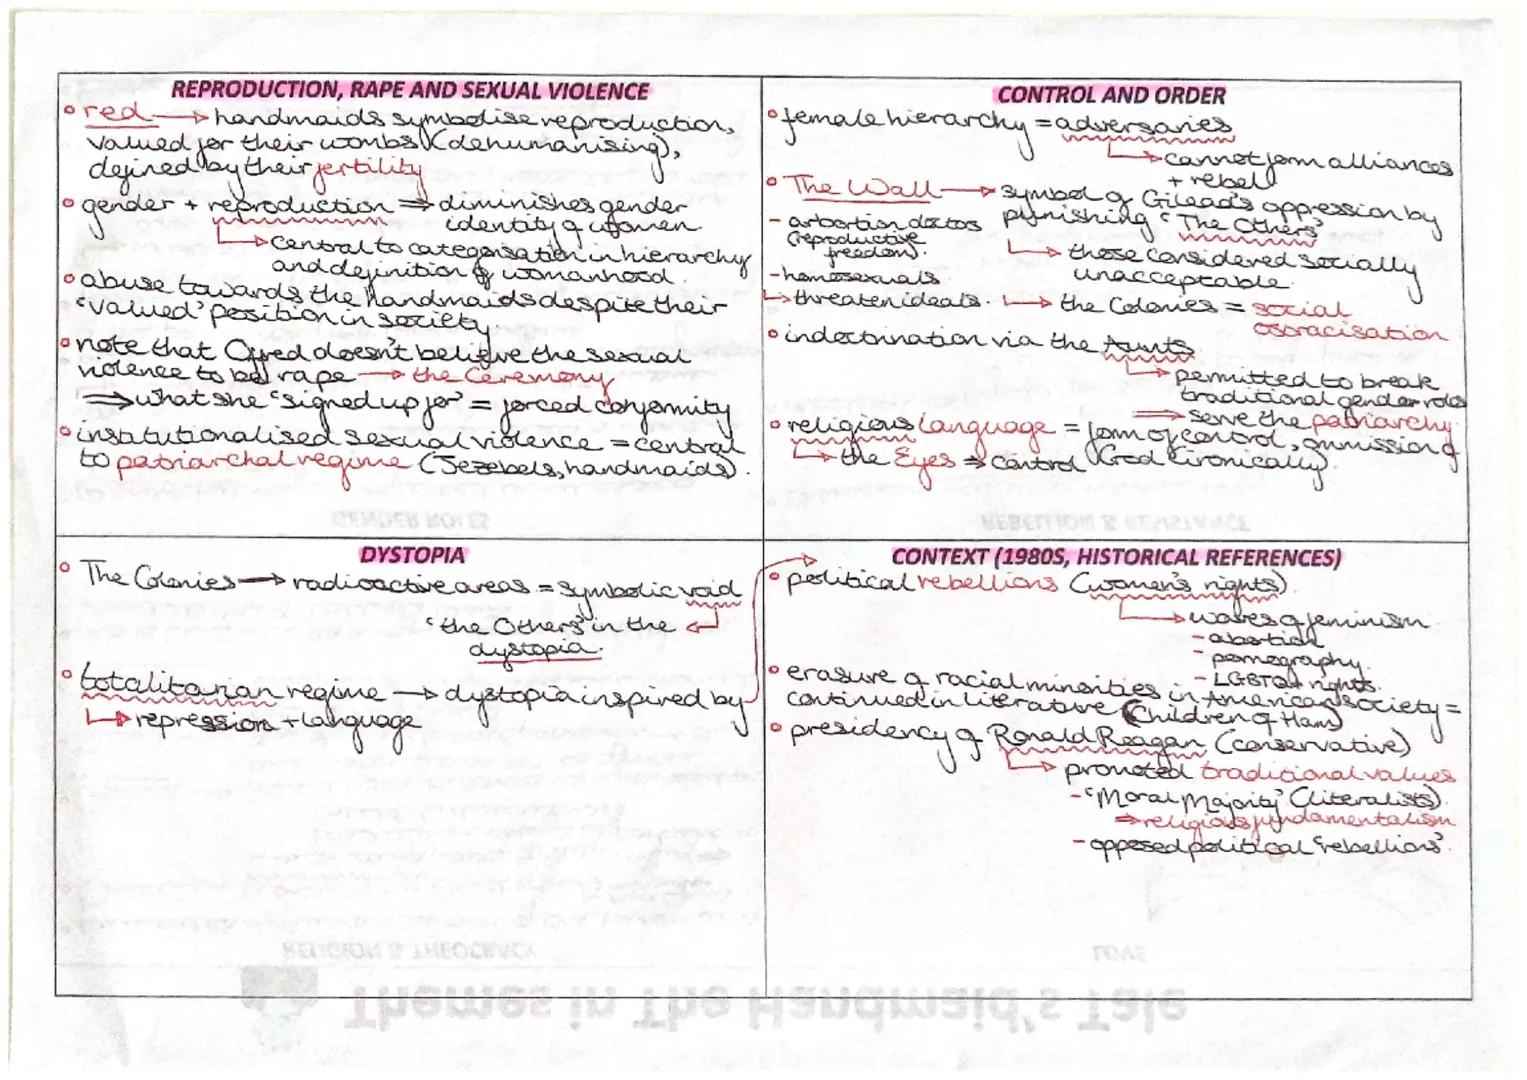 REPRODUCTION, RAPE AND SEXUAL VIOLENCE
• red → handmaids symbolise reproduction,
valued for their wombs (dehumanising),
defined by their fertility
• gender + reproduction ⇒ diminishes gender
identity of women.
↳ central to categorisation in hierarchy
and definition of womanhood.
• abuse towards the Handmaids despite their
'valued' position in society
• note that Offred doesn't believe the sexual
violence to be rape → the Ceremony
⇒ what she "signed up for" = forced conformity
• institutionalised sexual violence = central
to patriarchal regime (Jezebels, handmaids).
CONTROL AND ORDER
• female hierarchy = adversaries
↳ cannot form alliances
+ rebel
• The Wall → symbol of Gilead's oppression by
punishing 'The Others'
- arbortion doctos
(reproductive
freedom).
- homosexuals.
↳ threaten ideals.
↳ those considered socially
unacceptable.
↳ the Colonies = social
osracisation
• indoctrination via the Aunts.
↳ permitted to break
traditional gender roles
⇒ serve the patriarchy.
• religious language = form of control, ommission of
God (ironically).
↳ the Eyes ⇒ control
DYSTOPIA
• The Colonies → radioactive areas = symbolic void
'the Others' in the
dystopia.
• totalitarian regime → dystopia inspired by
↳ repression + language
CONTEXT (1980S, HISTORICAL REFERENCES)
• political rebellions (women's rights).
↳ waves of feminism.
- abortion
- pornography.
- LGBTQ+ rights.
• erasure of racial minorities in American society =
continued in literature (Children of Ham)
• presidency of Ronald Reagan (conservative)
↳ promoted traditional values
- 'Moral Majority' (literalists).
⇒ religious fundamentalism
- opposed political 'rebellions'.
GENDER ROLES
REBELLION & RESISTANCE
RELIGION & THEOCRACY
LOVE
Themes in The Handmaid's Tale